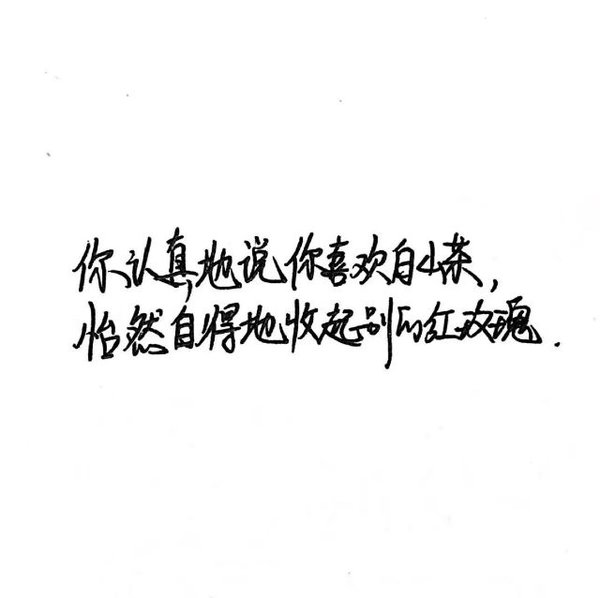 你认真地说你喜欢白山茶，
怡然自得地收起别的红玫瑰.